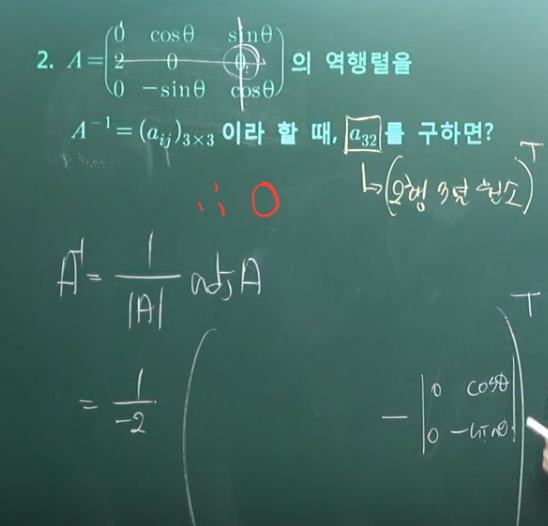 2. A = (0 cosθ sinθ
2 0 0
0 -sinθ cosθ) 의 역행렬을
A⁻¹ = (aᵢⱼ)₃ₓ₃ 이라 할 때, a₃₂ 를 구하면?
↳ (2행 3열 원소)ᵀ
∴ 0
A⁻¹ = 1/|A| adj A
= 1/-2 ( - |0 cosθ
0 -sinθ| )ᵀ